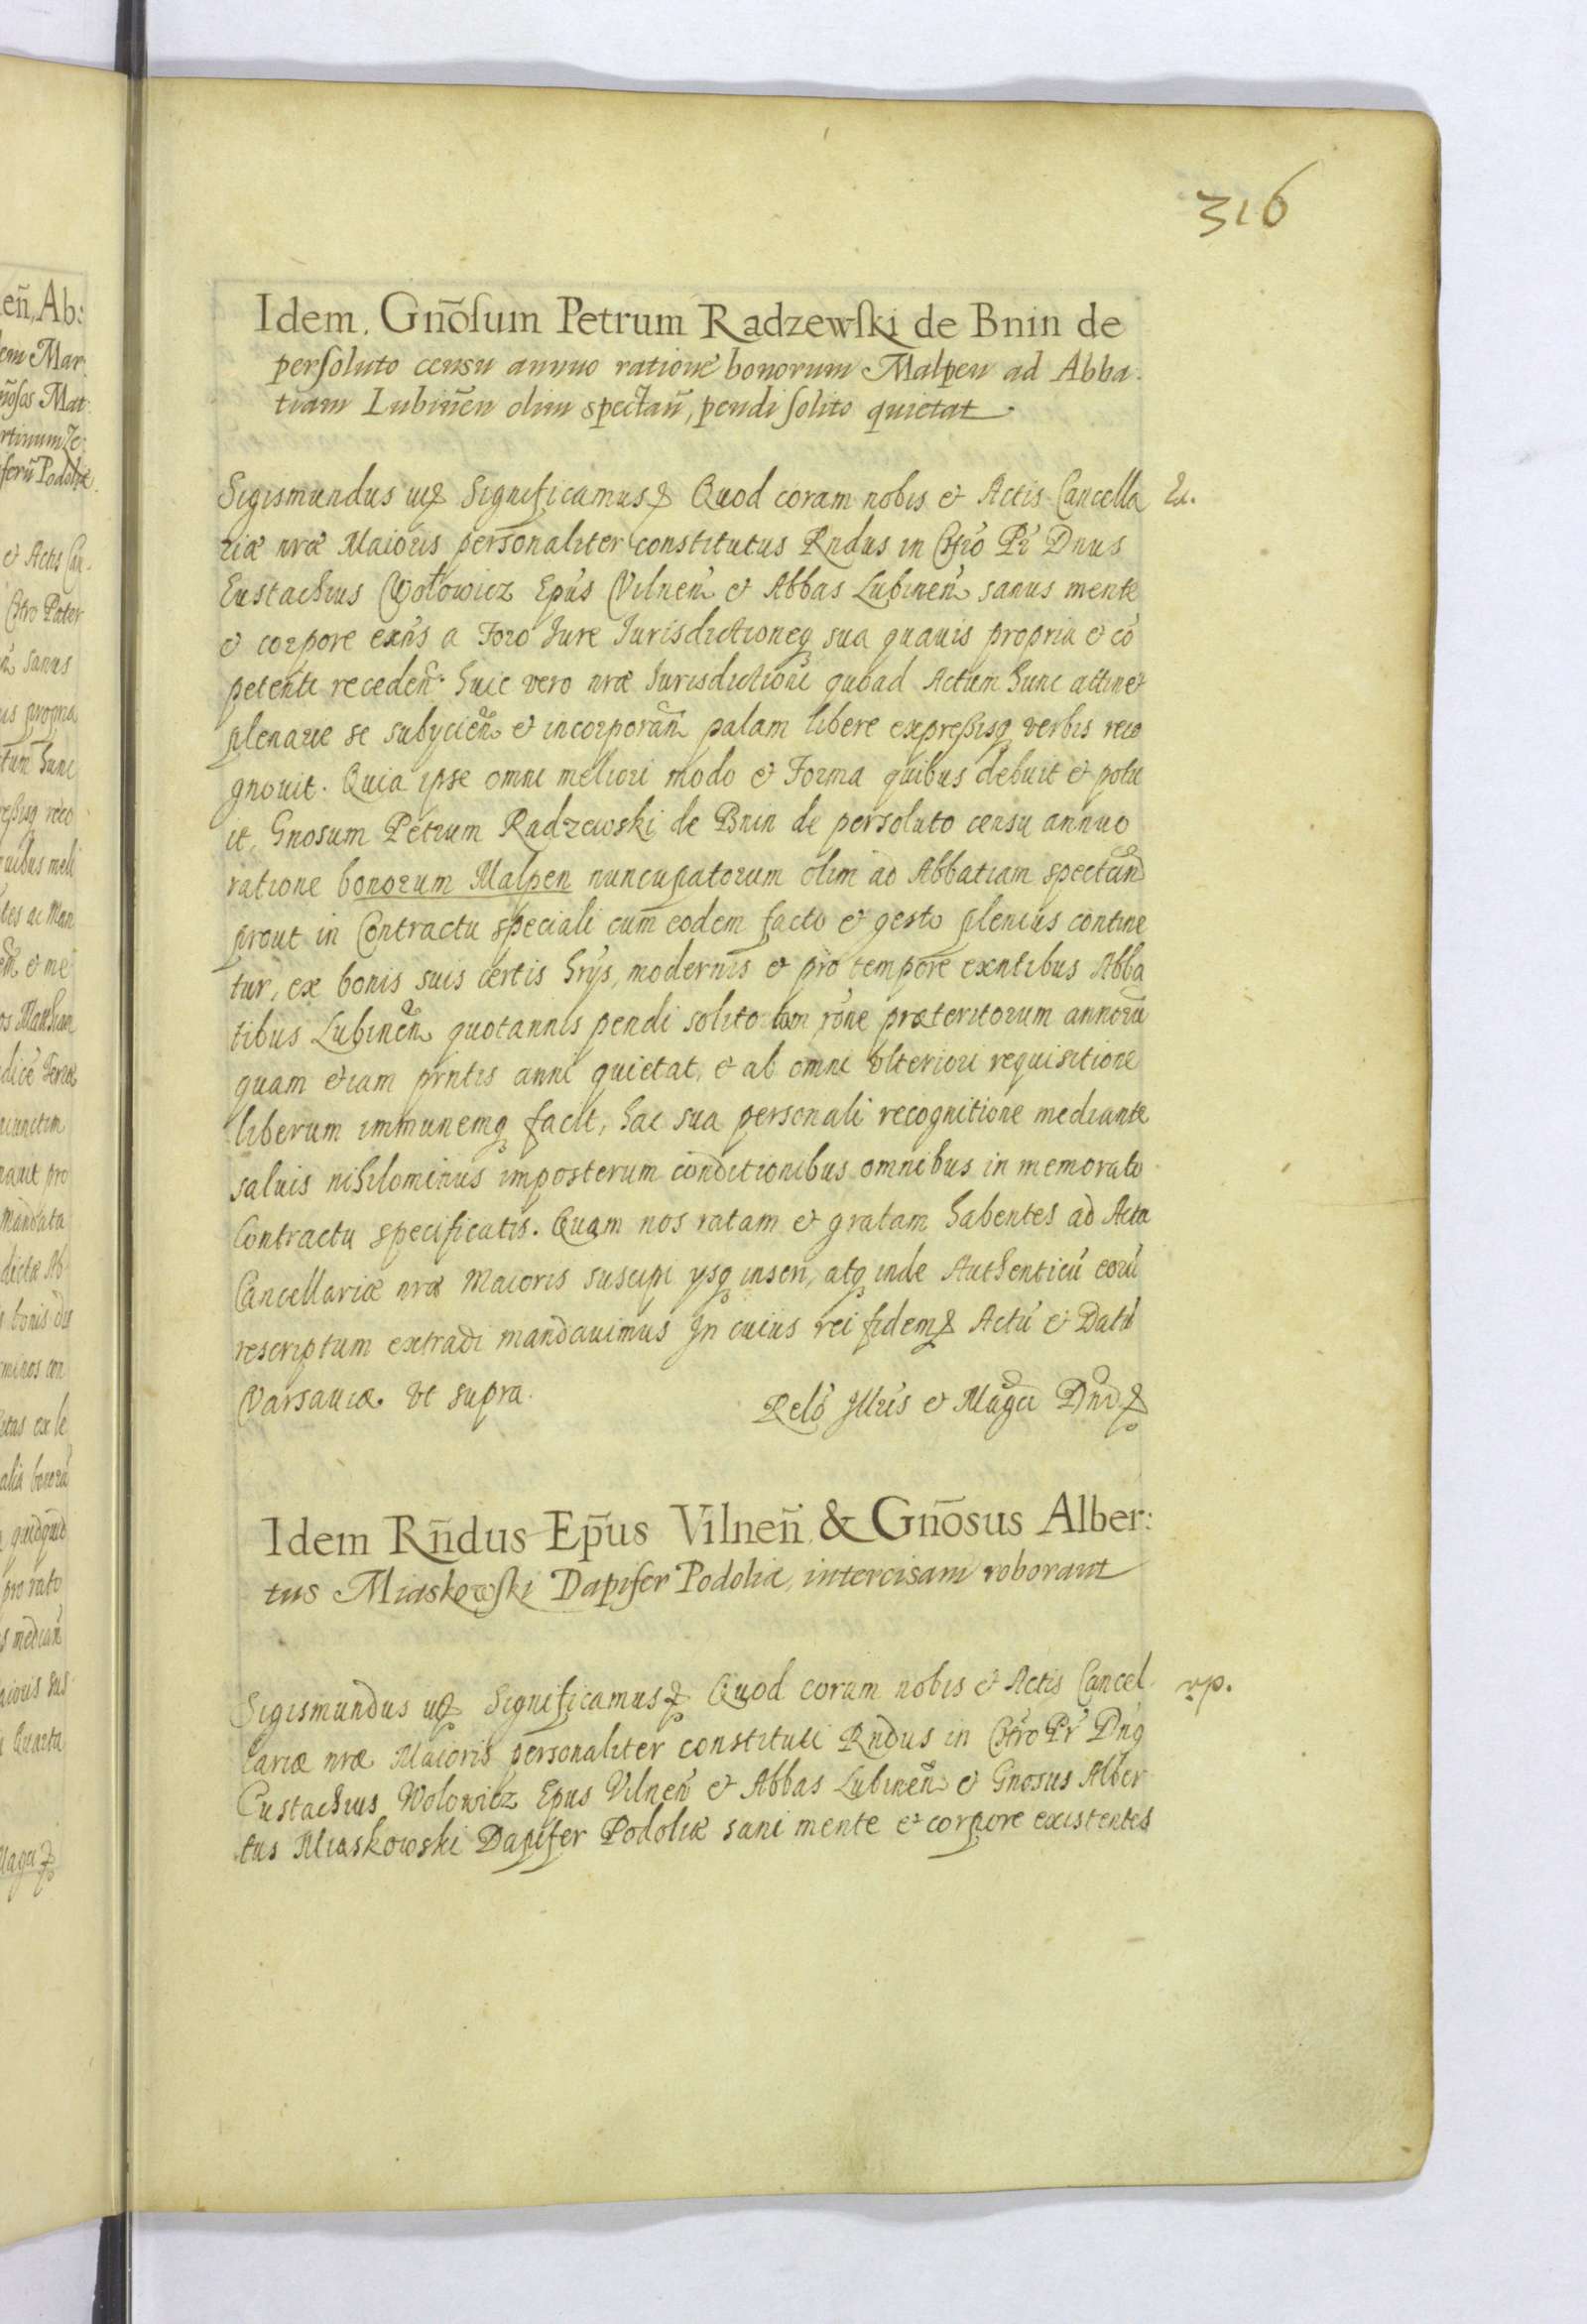 316
Idem. Gñosum Petrum Radzewski de Bnin de
persoluto censu annuo ratione bonorum Malpen ad Abba.
tiam Lubiñen olim spectañ, pendi solito quietat.
Sigismundus Significamus Quod coram nobis et Actis Cancella
riæ nræ Maioris personaliter constitutus Rndus in Chro Pr Dnus
Eustachius Wołowicz Epus Vilnen et Abbas Lubinen sanus mente
et corpore exns a Foro Jure Jurisdictioneq sua quauis propria et co
petenti receden. huic vero nræ Jurisdictioni quoad Actum hunc attinet
plenarie se subycien et incorporan palam libere expressisq verbis reco
gnouit. Quia ipse omni meliori modo et Forma quibus debuit et potu
it, Gnosum Petrum Radzewski de Bnin de persoluto censu annuo
ratione bonorum Malpen nuncupatorum olim ad Abbatiam spectan
prout in Contractu speciali cum eodem facto et gesto plenius contine
tur, ex bonis suis certis hrys, modernis et pro tempore exntibus Abba
tibus Lubinen quotannis pendi solito tam rone præteritorum annoru
quam etiam prntis anni quietat, et ab omni vlteriori requisitione
liberum immunemq facit, hac sua personali recognitione mediante
saluis nihilominus imposterum conditionibus omnibus in memorato
Contractu specificatis. Quam nos ratam et gratam habentes ad Acta
Cancellariæ nræ Maioris suscipi ysq inseri, atq inde Authenticu eoru
rescriptum extradi mandauimus In cuius rei fidem Actu et Datu
Varsauiæ. vt supra.
Relo Illris et Magci Dni
Idem Rñdus Ep̃us Vilneñ & Gñosus Alber:
tus Miaskowski Dapifer Podoliæ, intercisam roborant
Sigismundus Significamus Quod coram nobis et Actis Cancel
lariæ nræ Maioris personaliter constituti Rndus in Chro Pr Dnq
Eustachius Wolowicz Epus Vilnen et Abbas Lubinen et Gnosus Alber
tus Miaskowski Dapifer Podoliæ sani mente et corpore existentes